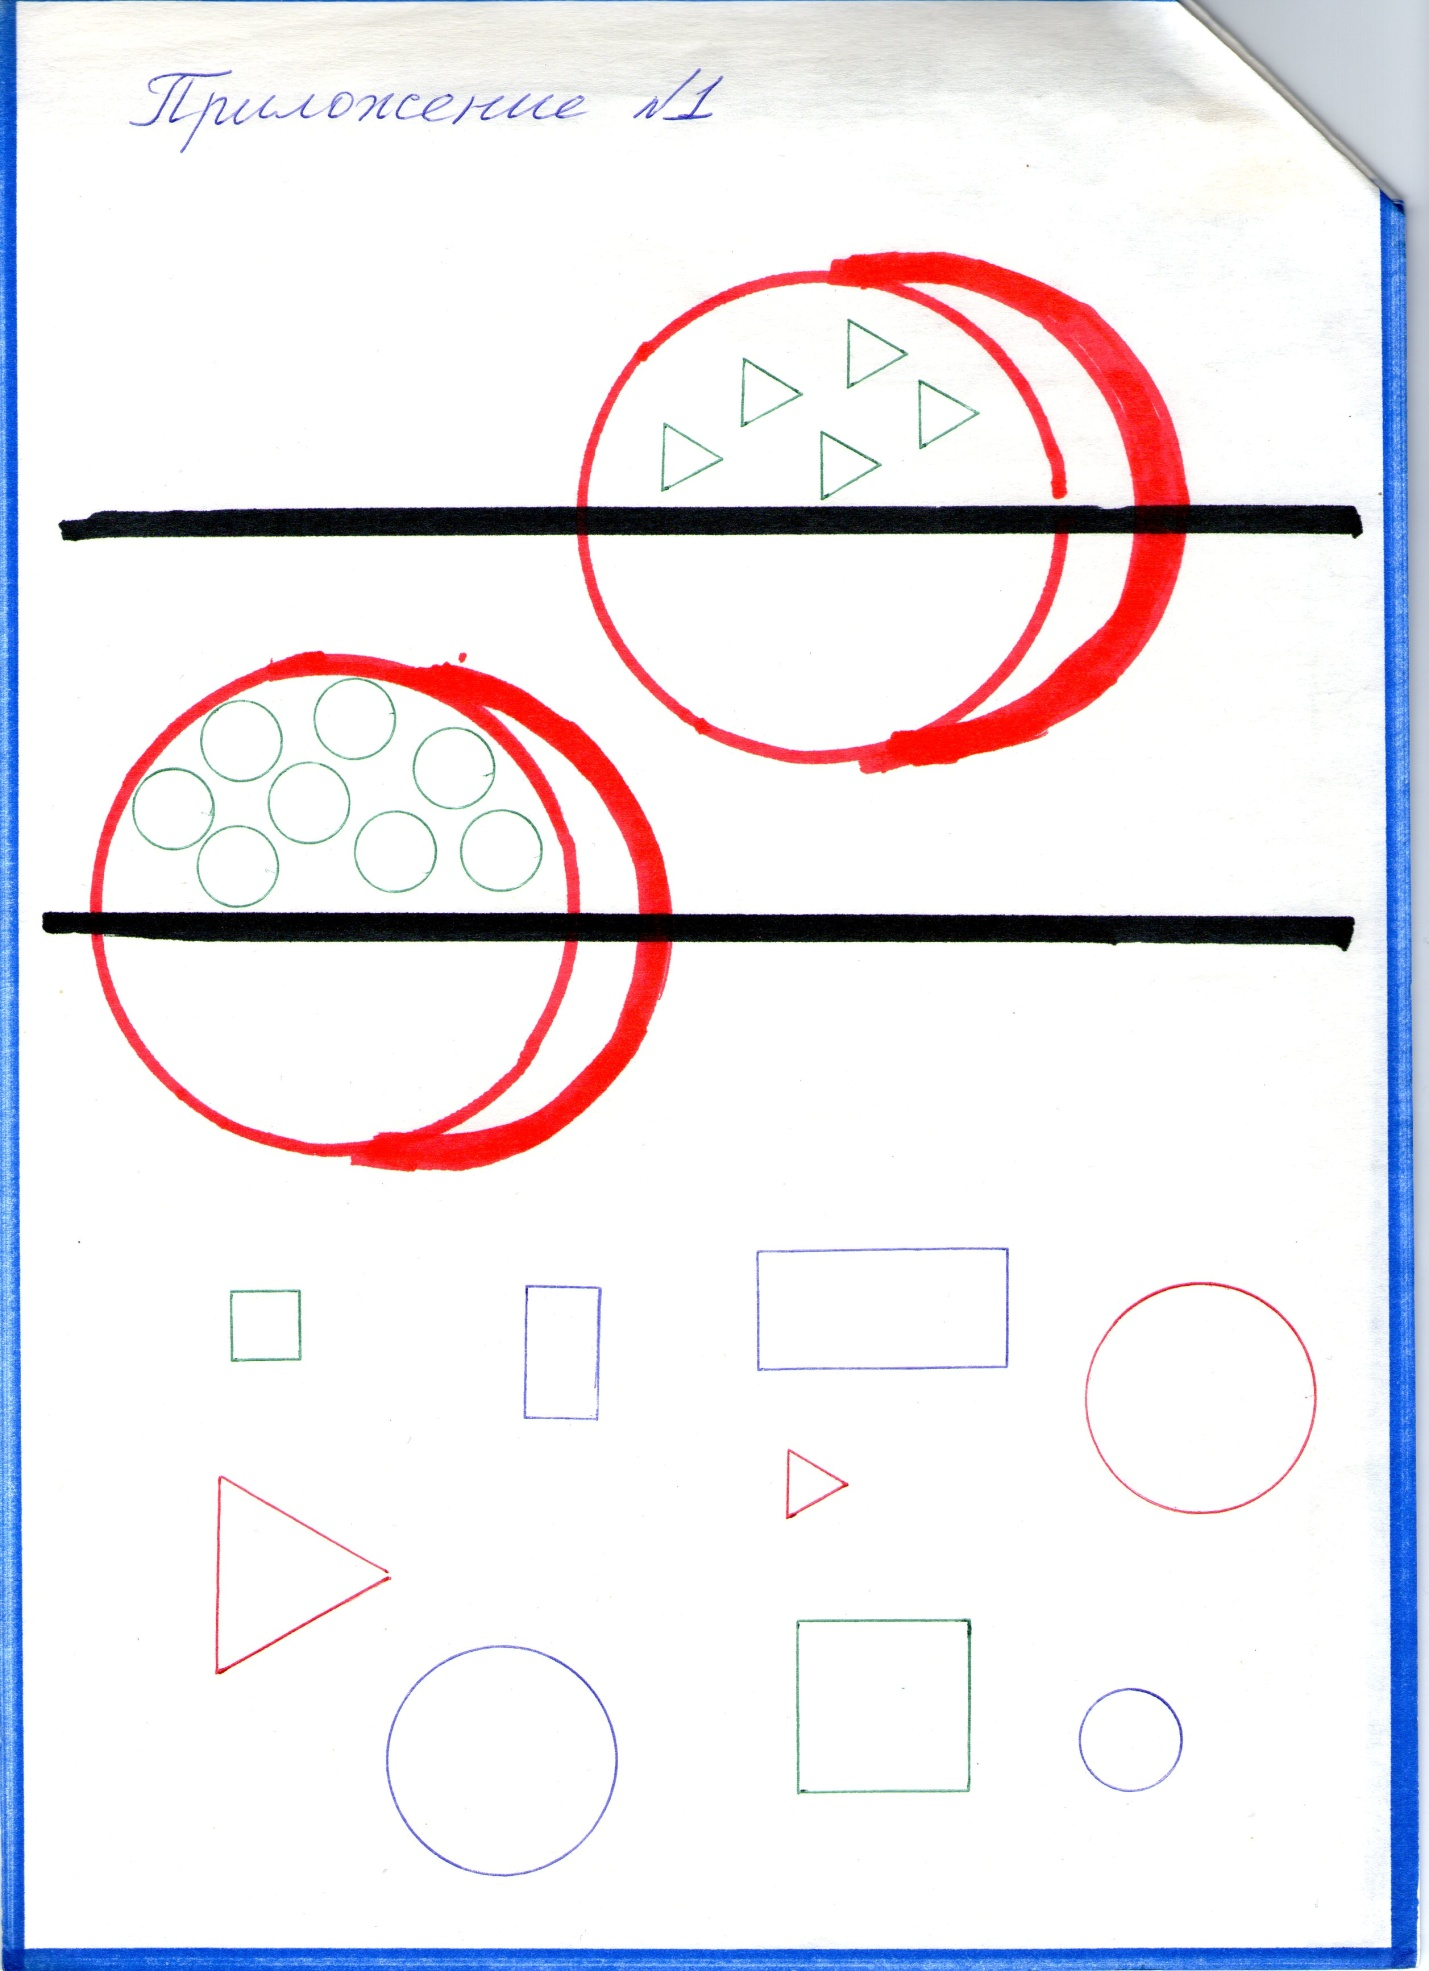 Приложение №1